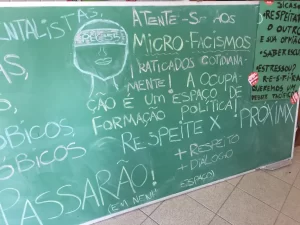 NTALISTAS,
AS,
ÓBICOS
ÓBICOS
PASSARÃO!
ATENTE-SE AOS
MICRO-FACISMOS
PRATICADOS COTIDIANA-
MENTE! A OCUPA-
ÇÃO É UM ESPAÇO DE
FORMAÇÃO POLÍTICA!
RESPEITE X PRÓXIMX
+ RESPEITO
+ DIÁLOGO
DICAS
+ RESPEITAR
O OUTRO
E SUA
+ SABER
ESTRESSOU?
R-E-S-P-I-R-A
QUEREMOS UM